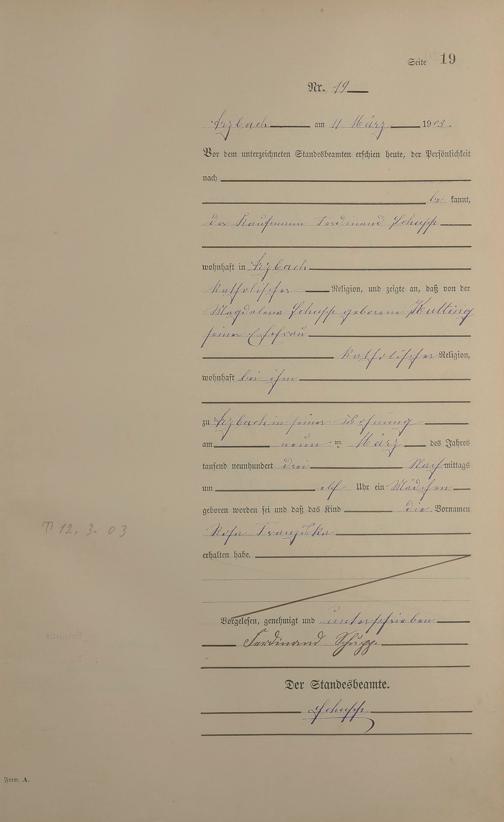 Seite 19
Nr. 19
Arzbach am 11 März 1903.
Vor dem unterzeichneten Standesbeamten erschien heute, der Persönlichkeit
nach
be kannt,
der Kaufmann Ferdinand Schupp
wohnhaft in Arzbach
katholischer Religion, und zeigte an, daß von der
Magdalena Schupp geborene Hutting
seiner Ehefrau
katholischer Religion,
wohnhaft bei ihm
zu Arzbach in seiner Wohnung
am neun ten März des Jahres
tausend neunhundert drei Nach mittags
um elf Uhr ein Mädchen
geboren worden sei und daß das Kind die Vornamen
Rosa Franziska
erhalten habe.
12. 3. 03
Vorgelesen, genehmigt und unterschrieben
Ferdinand Schupp
Der Standesbeamte.
Schupp
Form. A.